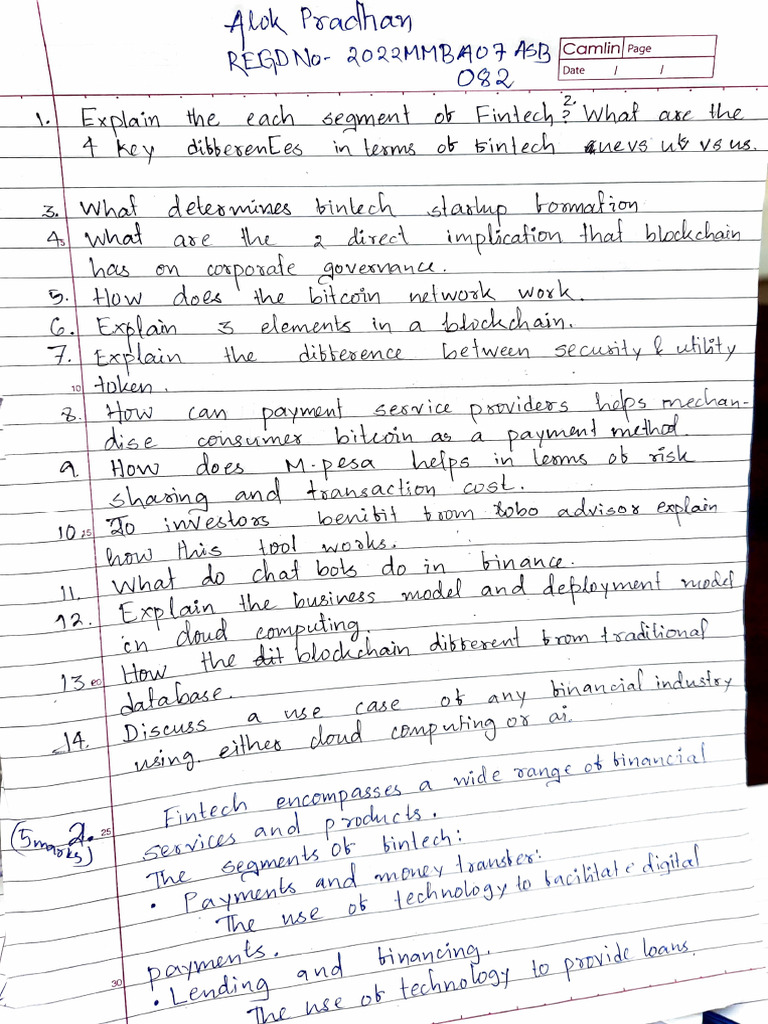 Alok Pradhan
REGD No- 2022MMBA07ASB
082
Camlin Page
Date / /
1. Explain the each segment of Fintech? 2. What are the
4 key differences in terms of fintech vs uk vs us.
3. What determines fintech startup formation
4. What are the 2 direct implication that blockchain
has on corporate governance.
5. How does the bitcoin network work.
6. Explain 3 elements in a blockchain.
7. Explain the difference between security & utility
10 token.
8. How can payment service providers helps mechan-
dise consumer bitcoin as a payment method.
9. How does M-pesa helps in terms of risk
sharing and transaction cost.
10. 15 Do investors benifit from robo advisor explain
how this tool works.
11. What do chat bots do in finance.
12. Explain the business model and deployment model
in cloud computing.
13. 20 How the blockchain different from traditional
database.
14. Discuss a use case of any financial industry
using either cloud computing or ai.
(5 marks) 2. 25 Fintech encompasses a wide range of financial
services and products.
The segments of fintech:
• Payments and money transfer:
The use of technology to facilitate digital
payments.
30 • Lending and financing.
The use of technology to provide loans.